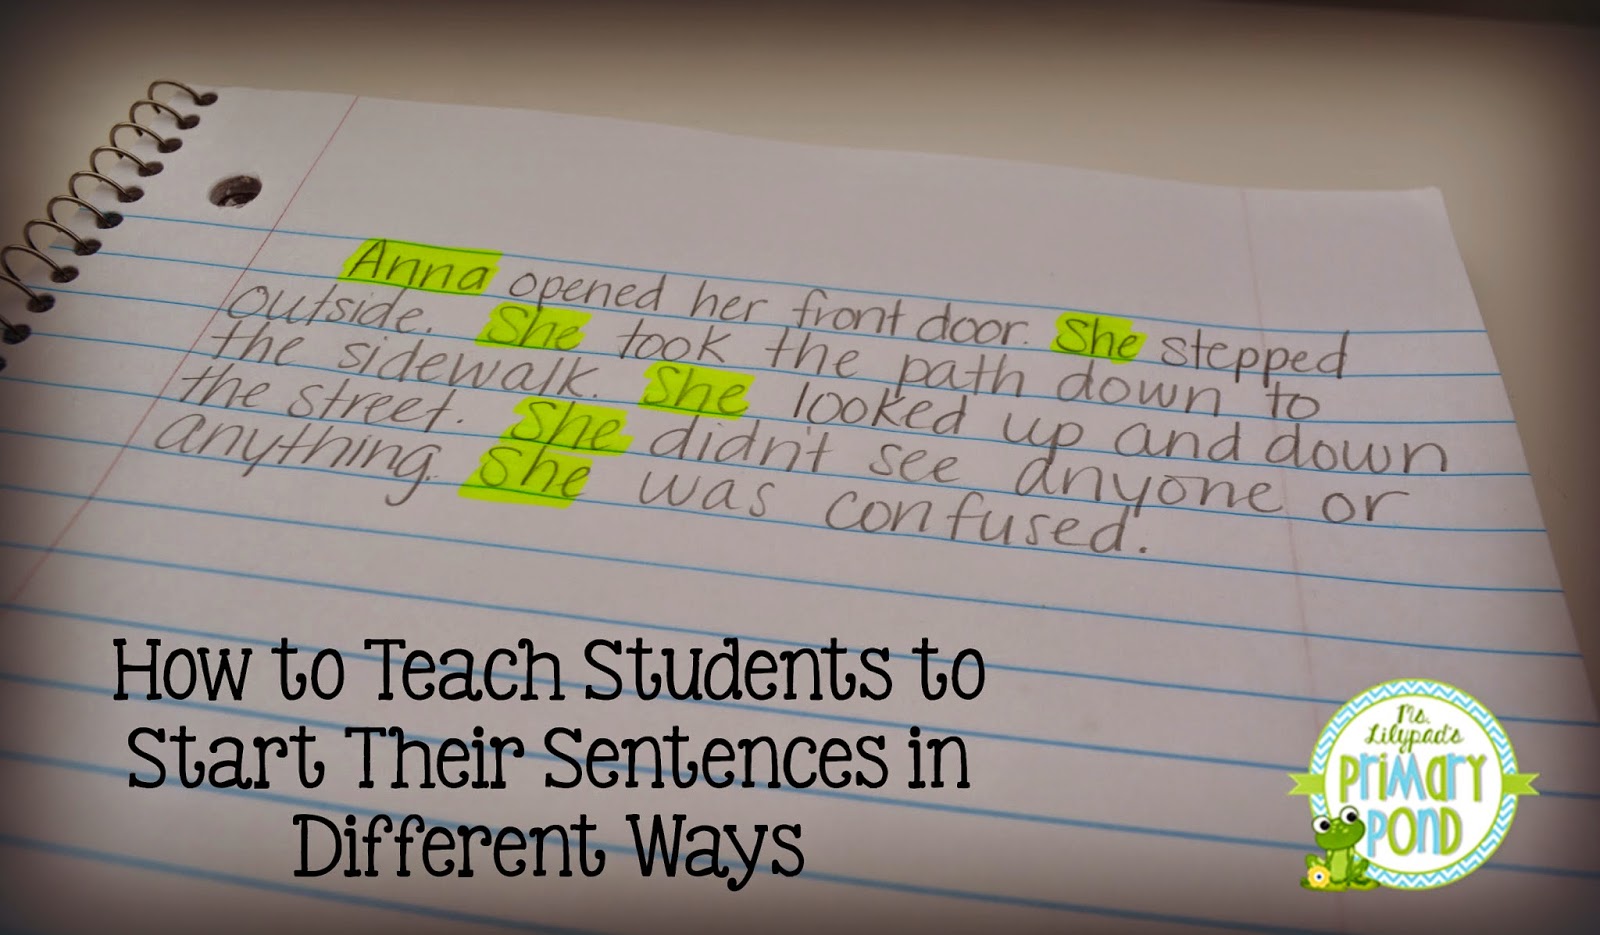 Anna opened her front door. She stepped
outside. She took the path down to
the sidewalk. She looked up and down
the street. She didn't see anyone or
anything. She was confused.
How to Teach Students to
Start Their Sentences in
Different Ways
Ms.
Lilypad's
PRIMARY
POND